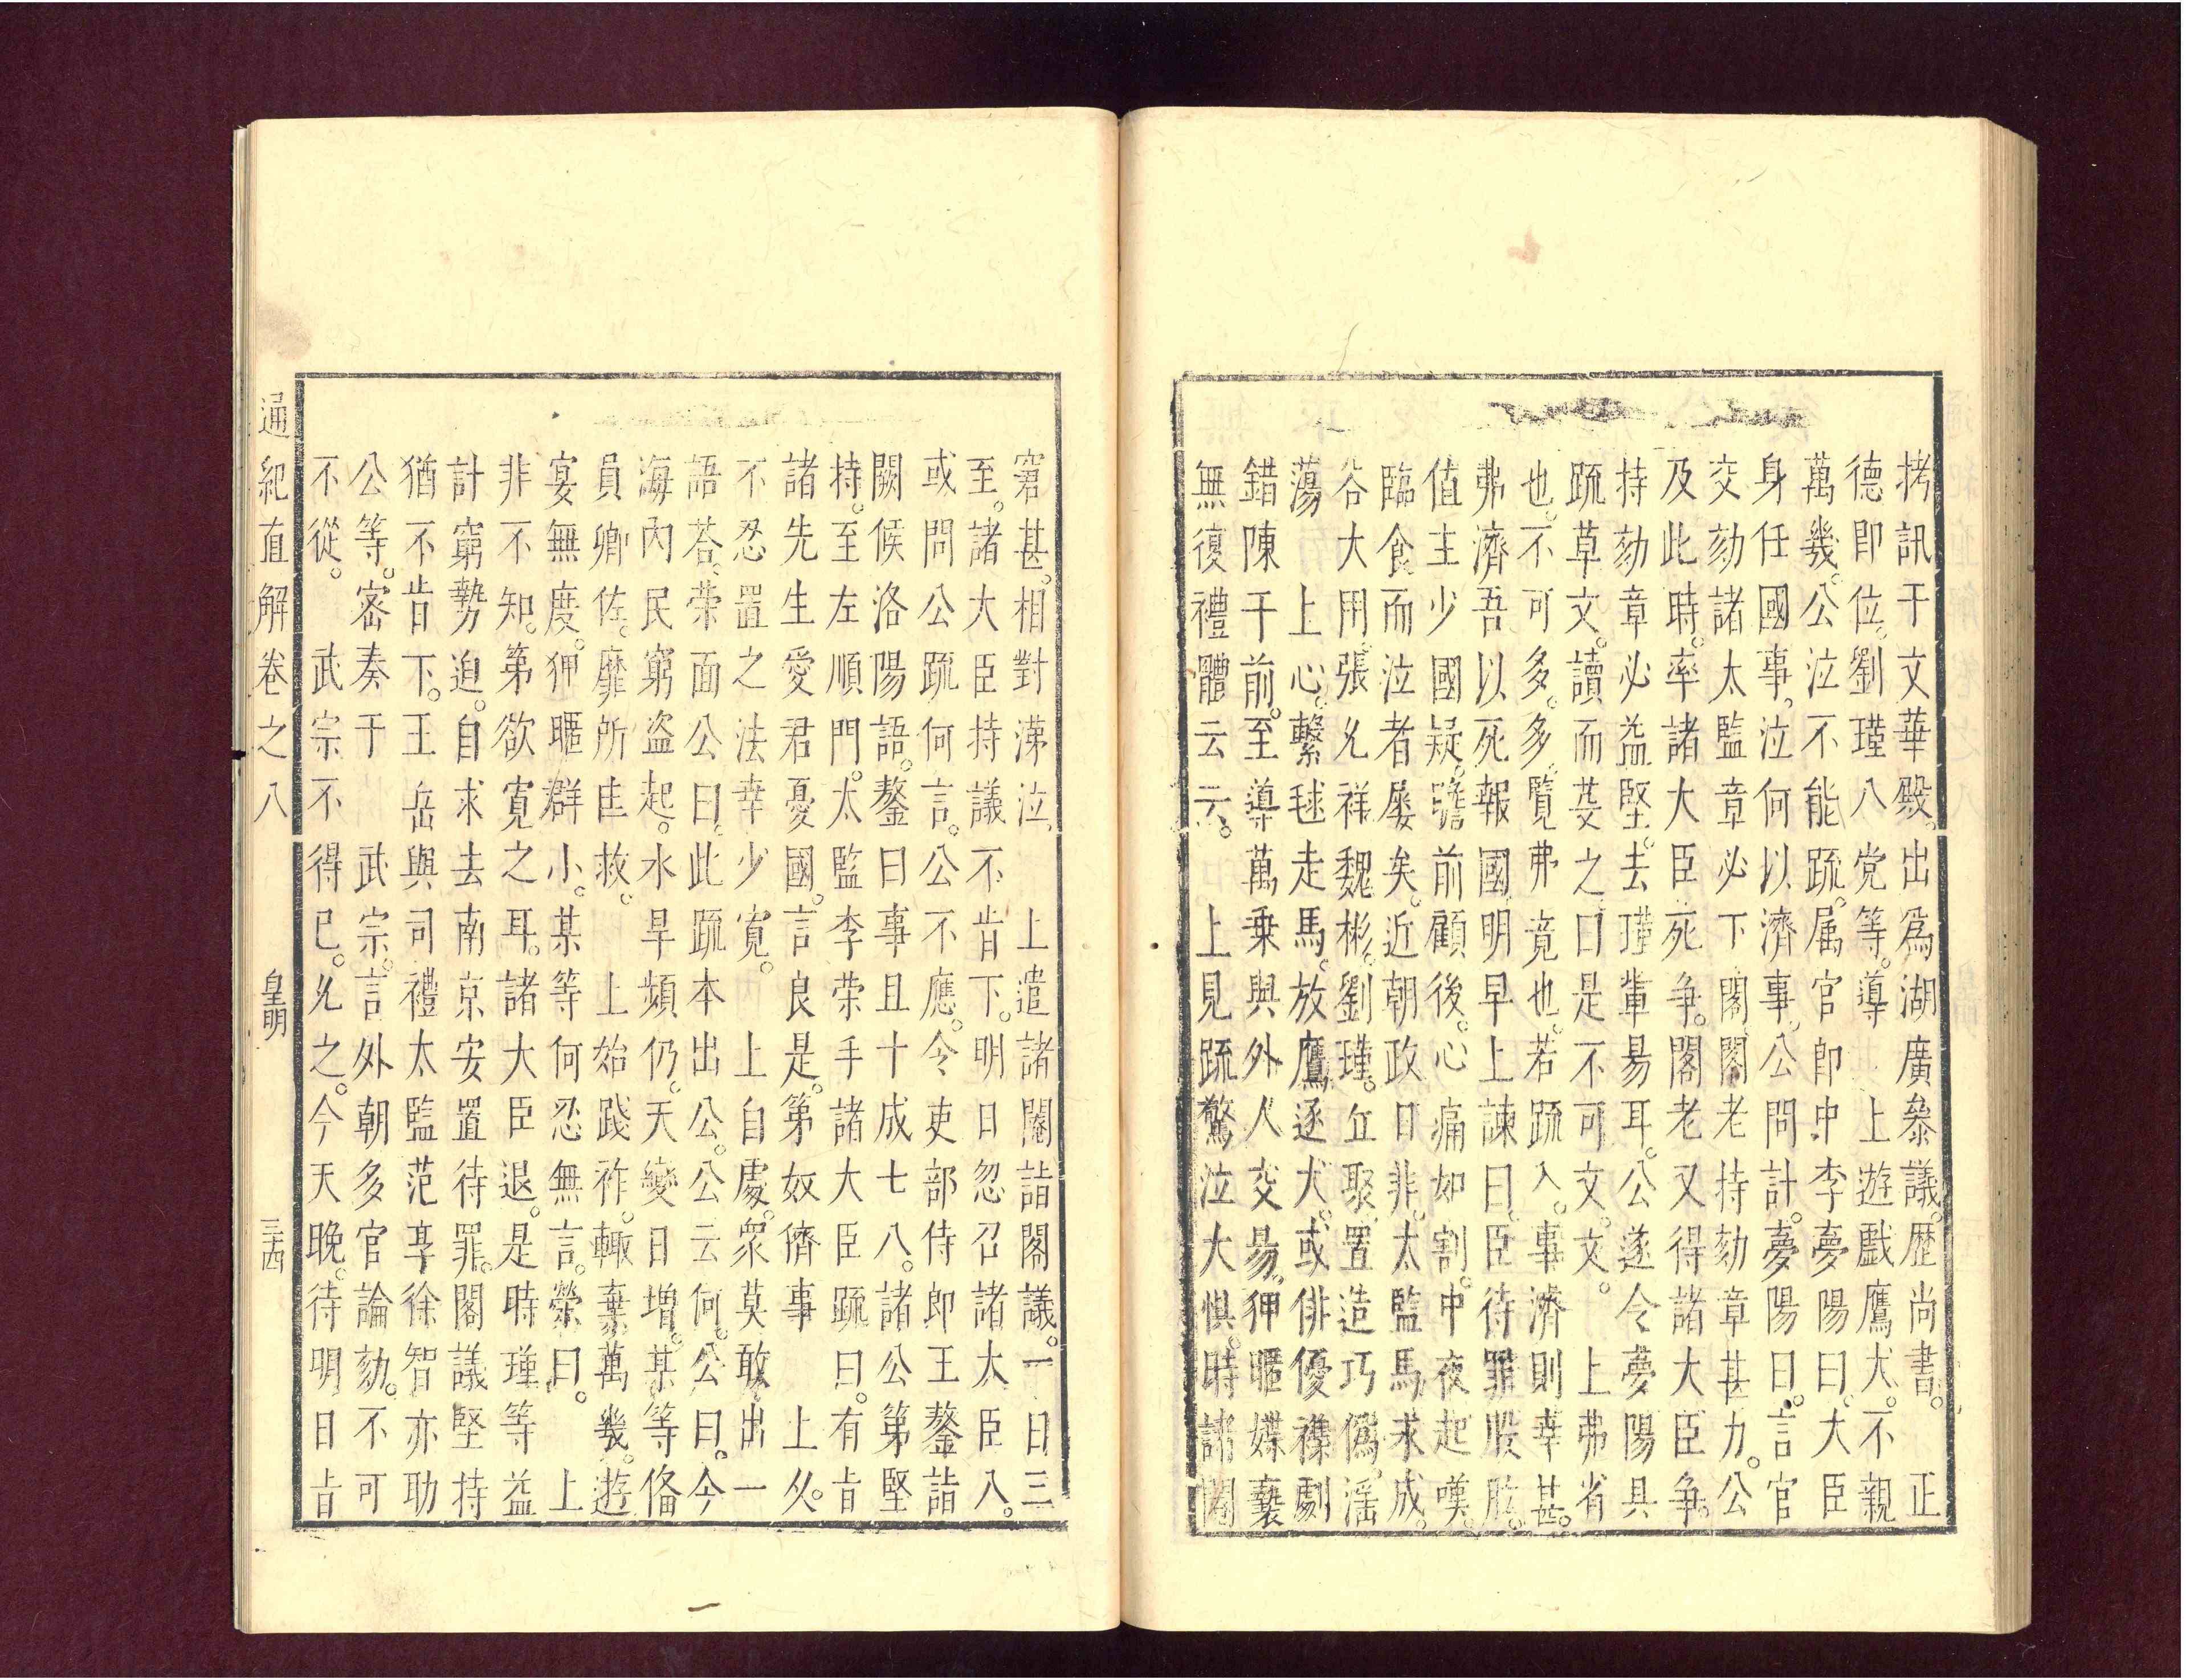 拷訊于文華殿。出爲湖廣叅議。歴尚書。　正
德即位。劉瑾八党等。導　上遊戲鷹犬。不親
萬幾。公泣不能䟽。属官郎中李夢陽曰。大臣
身任國事。泣何以濟事。公問計。夢陽曰。言官
交劾諸太監章必下閣。閣老持劾章甚力。公
及此時。率諸大臣死争。閣老又得諸大臣争。
持劾章必益堅。去瑾輩易耳。公遂令夢陽具
䟽草文。讀而芟之。曰是不可文。文。　上弗省
也。不可多。多覽弗竟也。若䟽入。事濟則幸甚。
弗濟吾以死報國。明早上諫曰。臣待罪股肱。
值主少國疑。瞻前顧後。心痛如割。中夜起嘆。
臨食而泣者屡矣。近朝政日非。太監馬求成。
谷大用。張允祥魏彬。劉瑾。丘聚置造巧偽。滛
蕩　上心。繫毬走馬。放鷹逐犬。或俳優襍劇
錯陳于前。至導萬乗與外人交易。狎暱媟䙝
無復禮體云云。　上見䟽驚泣大惧。時諸閹
窘甚。相對涕泣　上遣諸閹詣閣議。一日三
至。諸大臣持議不肯下。明日忽召諸大臣入。
或問公䟽何言。公不應。令吏部侍郎王鏊詣
闕候洛陽語。鏊曰事且十成七八。諸公第堅
持。至左順門。太監李荣手諸大臣䟽曰。有㫖
諸先生愛君憂國。言良是。第奴儕事　上久。
不忍置之法幸少寛。　上自處。衆莫敢出一
語荅。荣面公曰。此䟽本出公。公云何。公曰。今
海内民窮盗起。水旱頻仍。天變日增。某等俻
員卿佐。靡所匡救。　上始踐祚。輙棄萬幾。遊
宴無度。狎暱群小。某等何忍無言。榮曰。　上
非不知。第欲寛之耳。諸大臣退。是時瑾等益
計窮勢迫。自求去南京安置待罪。閣議堅持
猶不肯下。王岳與司禮太監范亨徐智亦助
公等。密奏于　武宗。言外朝多官論劾。不可
不從。　武宗不得已。允之。今天晚。待明日㫖
通紀直解卷之八　皇明　三十四